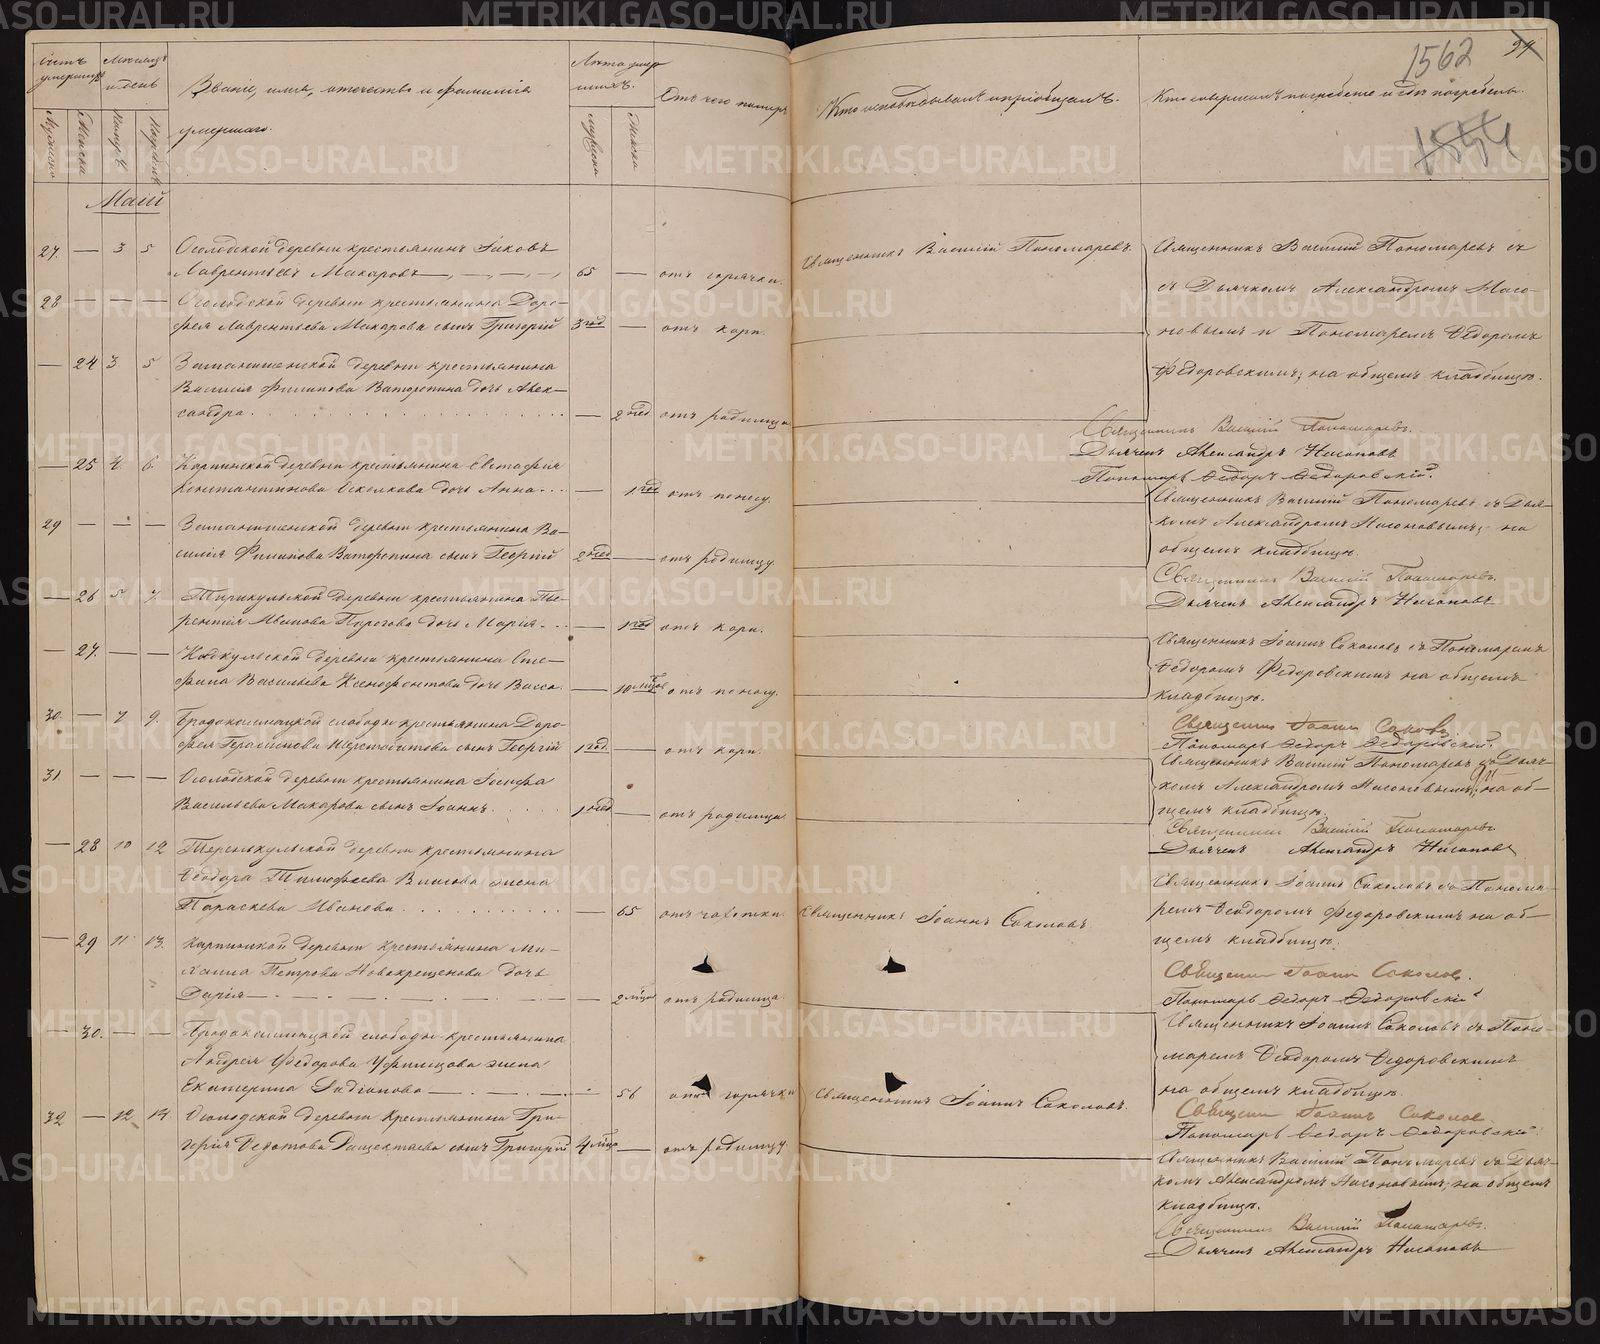 1562
94
1554
Счетъ умершихъ
Мѣсяцъ и день
Званіе, имя, отчество и фамилія
умершаго.
Лѣта умершихъ.
Отъ чего померъ
Кто исповѣдывалъ и пріобщалъ.
Кто совершалъ погребеніе и гдѣ погребены.
Мужеска
Женска
Май
27. — 3 5 Осолодской деревни крестьянинъ Іаковъ
Лаврентьевъ Макаровъ 65 — отъ горячки. Священникъ Василій Пономаревъ.
Священникъ Василій Пономаревъ съ
Дьячкомъ Александромъ Насо-
новымъ и Пономаремъ Ѳедоромъ
Федоровскимъ; на общемъ кладбищѣ.
28 — — — Осолодской деревни крестьянина Доро-
фея Лаврентьева Макарова сынъ Григорій 3 год — отъ кори.
— 24 3 5 деревни крестьянина
Василія Филипова Ваторопина дочь Алек-
сандра — 2 нед отъ родимца
Священникъ Василій Пономаревъ.
Дьячекъ Александръ Насоновъ
Пономарь Ѳедоръ Ѳедоровскій.
— 25 4 6. Карпинской деревни крестьянина Евстафія
Константинова дочь Анна — 1 год отъ поносу.
Священникъ Василій Пономаревъ съ Дьяч-
комъ Александромъ Насоновымъ; на
общемъ кладбищѣ.
29 — — — деревни крестьянина Ва-
силія Филипова Ваторопина сынъ Георгій 2 нед — отъ родимцу
Священникъ Василій Пономаревъ.
Дьячекъ Александръ Насоновъ
— 26 5 7. деревни крестьянина Те-
рентія Иванова Пирогова дочь Марія — 1 год отъ кори.
Священникъ Іоаннъ Соколовъ съ Пономаремъ
Ѳедоромъ Федоровскимъ на общемъ
кладбищѣ.
— 27. — — деревни крестьянина Сте-
фана Васильева Ксенофонтова дочь Васса — 10 мѣсяц отъ поносу.
Священникъ Іоаннъ Соколовъ
Пономарь Ѳедоръ Ѳедоровскій.
30. — 7 9. Бродокалмацкой слободы крестьянина Доро-
фея Герасимова Шерстобитова сынъ Георгій 1 год. — отъ кори.
Священникъ Василій Пономаревъ съ Дьяч-
комъ Александромъ Насоновымъ; на об-
щемъ кладбищѣ.
31 — — — Осолодской деревни крестьянина Іосифа
Васильева Макарова сынъ Іоаннъ 1 нед — отъ родимца
Священникъ Василій Пономаревъ.
Дьячекъ Александръ Насоновъ
— 28 10 12 Теренькульской деревни крестьянина
Ѳеодора Тимофеева Власова жена
Параскева Иванова — 65 отъ чахотки. Священникъ Іоаннъ Соколовъ
Священникъ Іоаннъ Соколовъ съ Понома-
ремъ Ѳеодоромъ Федоровскимъ на об-
щемъ кладбищѣ.
— 29 11 13. Карпинской деревни крестьянина Ми-
хаила Петрова Новокрещенова дочь
Дарія — 2 мѣсяц отъ родимца.
Священникъ Іоаннъ Соколовъ.
Пономарь Ѳедоръ Ѳедоровскій
— 30. — — Бродокалмацкой слободы крестьянина
Андрея Федорова Уфимцова жена
Екатерина Родіонова — 56 отъ горячки Священникъ Іоаннъ Соколовъ.
Священникъ Іоаннъ Соколовъ съ Поно-
маремъ Ѳеодоромъ Ѳедоровскимъ
на общемъ кладбищѣ.
Священникъ Іоаннъ Соколовъ
Пономарь Ѳедоръ Ѳедоровскій
32 — 12 14. Осолодской деревни крестьянина Гри-
горія Ѳедотова сынъ Григорій 4 мѣсяц — отъ родимцу.
Священникъ Василій Пономаревъ съ Дьяч-
комъ Александромъ Насоновымъ; на общемъ
кладбищѣ.
Священникъ Василій Пономаревъ.
Дьячекъ Александръ Насоновъ
METRIKI.GASO-URAL.RU